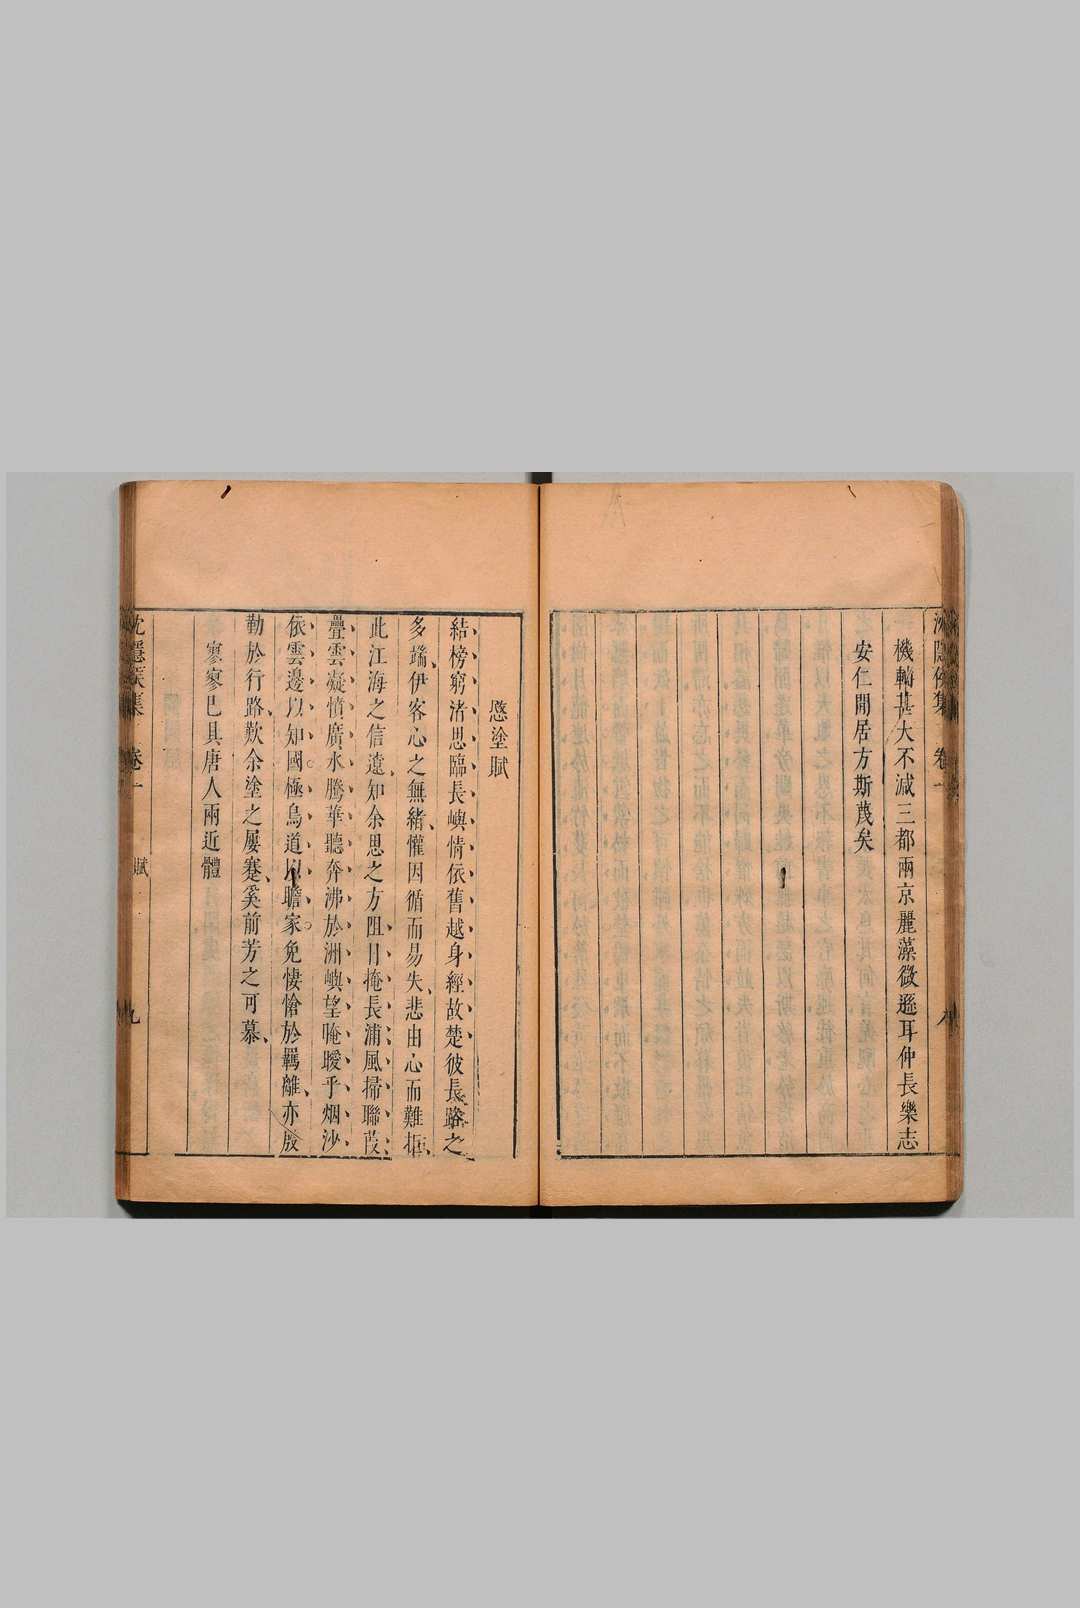 沈隱侯集 卷一 八
機軸甚大不減三都兩京麗藻微遜耳仲長樂志
安仁閒居方斯蔑矣
愍塗賦
結榜窮渚思臨長嶼情依舊越身經故楚彼長路之
多端伊客心之無緒懽因循而易失悲由心而難拒
此江海之信遠知余思之方阻目掩長浦風掃聯葭
疊雲凝憤廣水騰華聽奔沸於洲嶼望晻曖乎烟沙
依雲邊以知國極鳥道以瞻家免悽愴於羈離亦殷
勤於行路歎余塗之屢蹇奚前芳之可慕
寥寥已具唐人兩近體
沈隱侯集 卷一 賦 九